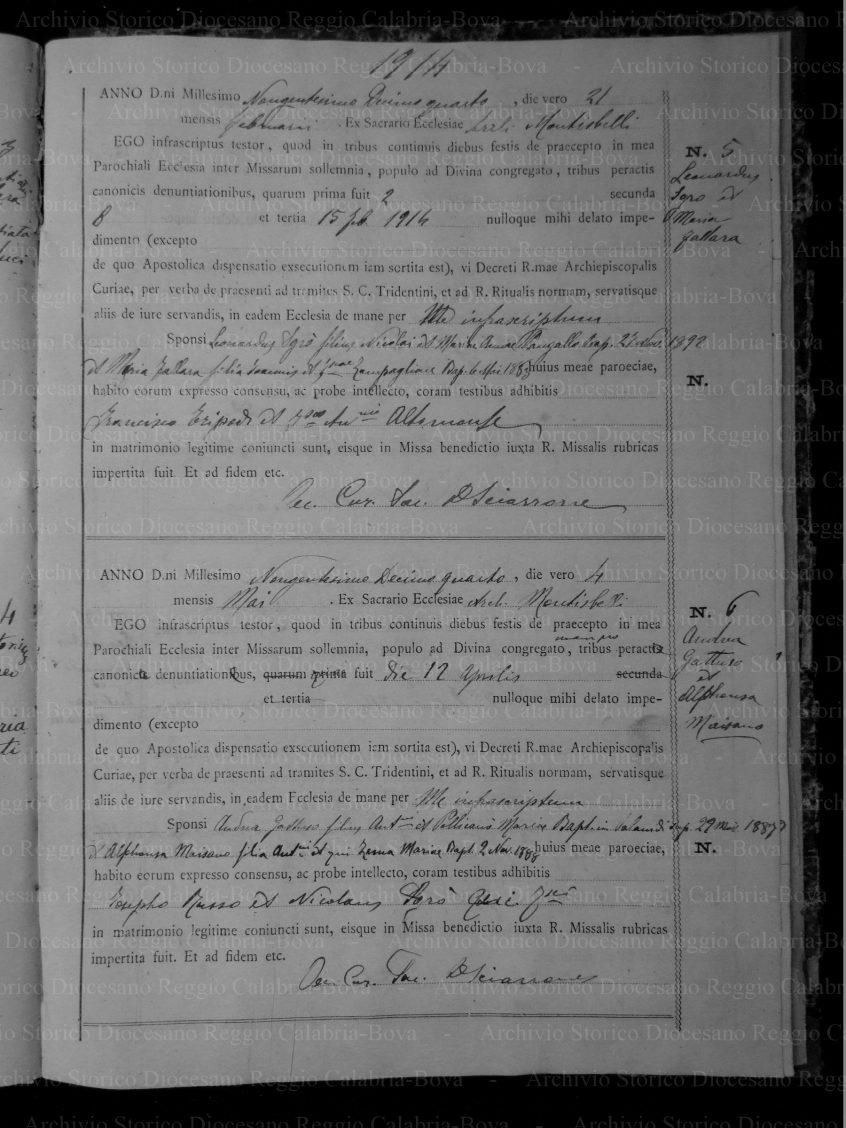 1914
ANNO D.ni Millesimo Nongentesimo Decimo quarto, die vero 21
mensis Februarii. Ex Sacrario Ecclesiae Arch. Montisbelli
EGO infrascriptus testor, quod in tribus continuis diebus festis de praecepto in mea
Parochiali Ecclesia inter Missarum sollemnia, populo ad Divina congregato, tribus peractis
canonicis denuntiationibus, quarum prima fuit 2 secunda
8 et tertia 15 feb. 1914 nulloque mihi delato impe-
dimento (excepto
de quo Apostolica dispensatio exsecutionem iam sortita est), vi Decreti R.mae Archiepiscopalis
Curiae, per verba de praesenti ad tramites S. C. Tridentini, et ad R. Ritualis normam, servatisque
aliis de iure servandis, in eadem Ecclesia de mane per Me infrascriptum
Sponsi Leonardus Sgrò filius Nicolai et Mariae Annae Pangallo Bap. Nov. 1892
et Maria Fallara filia Joannis et Zampaglione Bap. huius meae paroeciae,
habito eorum expresso consensu, ac probe intellecto, coram testibus adhibitis
Francisco Tripodi et Altomonte
in matrimonio legitime coniuncti sunt, eisque in Missa benedictio iuxta R. Missalis rubricas
impertita fuit. Et ad fidem etc.
Oec. Cur. Sac. D Sciarrone
N. 5
Leonardus
Sgro et
Maria
Fallara
N.
ANNO D.ni Millesimo Nongentesimo Decimo quarto, die vero 4
mensis Mai. Ex Sacrario Ecclesiae Arch. Montisbelli
EGO infrascriptus testor, quod in tribus continuis diebus festis de praecepto in mea
Parochiali Ecclesia inter Missarum sollemnia, populo ad Divina congregato, tribus peractis
canonicis denuntiationibus, quarum prima fuit die 12 Aprilis secunda
et tertia nulloque mihi delato impe-
dimento (excepto
de quo Apostolica dispensatio exsecutionem iam sortita est), vi Decreti R.mae Archiepiscopalis
Curiae, per verba de praesenti ad tramites S. C. Tridentini, et ad R. Ritualis normam, servatisque
aliis de iure servandis, in eadem Ecclesia de mane per Me infrascriptum
Sponsi Andrea Gattuso filius Ant. et Pellicanò Mariae Bapt. in 29 1887
et Alphonsa Maisano filia Ant. et Mariae Bapt. 2 Nov. 1888 huius meae paroeciae,
habito eorum expresso consensu, ac probe intellecto, coram testibus adhibitis
Josepho Russo et Nicolaus Sgrò
in matrimonio legitime coniuncti sunt, eisque in Missa benedictio iuxta R. Missalis rubricas
impertita fuit. Et ad fidem etc.
Oec. Cur. Sac. D Sciarrone
N. 6
Andrea
Gattuso
et
Alphonsa
Maisano
N.
Archivio Storico Diocesano Reggio Calabria-Bova